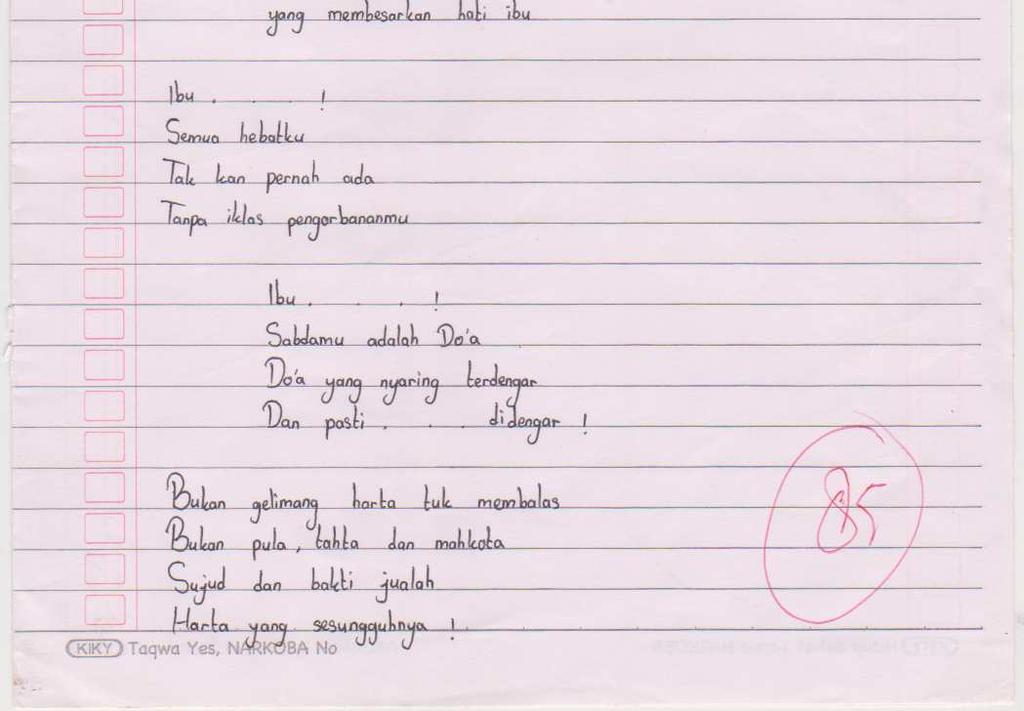 yang membesarkan hati ibu
Ibu . . . . !
Semua hebatku
Tak kan pernah ada
Tanpa iklas pengorbananmu
Ibu . . . . !
Sabdamu adalah Do'a
Do'a yang nyaring terdengar
Dan pasti . . . didengar !
Bukan gelimang harta tuk membalas
Bukan pula, tahta dan mahkota
Sujud dan bakti jualah
Harta yang sesungguhnya !
85
KIKY Taqwa Yes, NARKOBA No